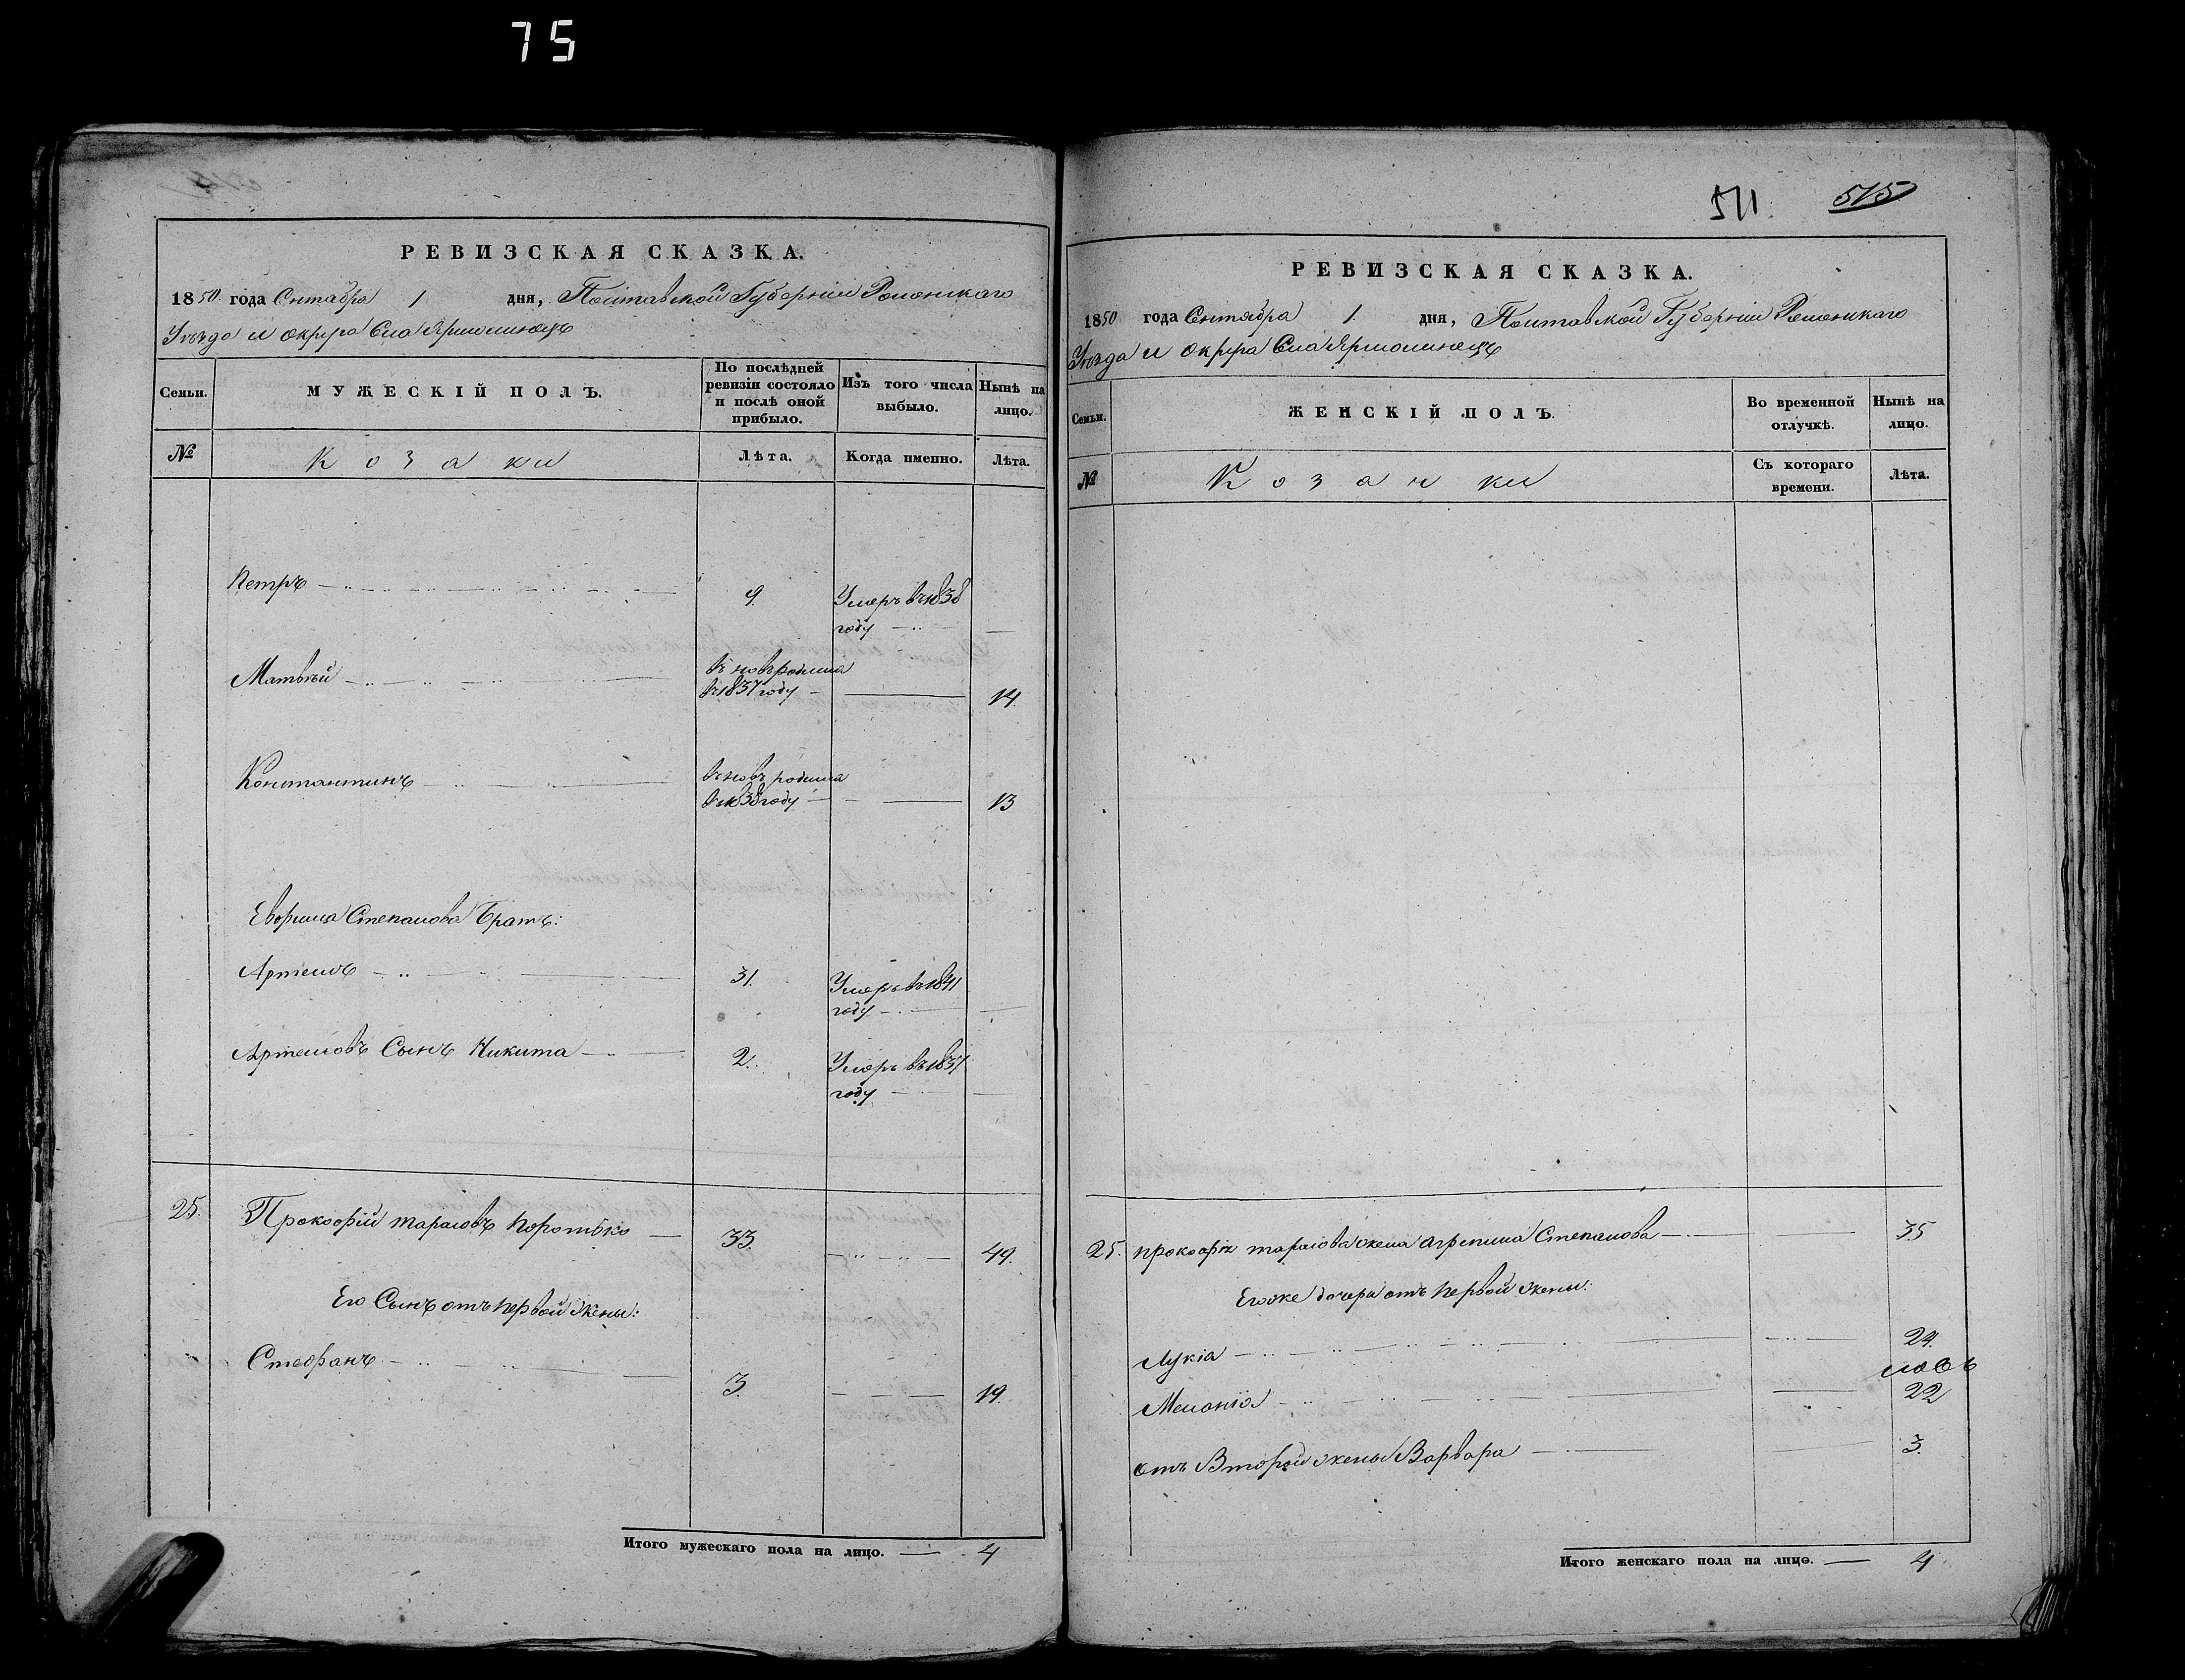 75
РЕВИЗСКАЯ СКАЗКА.
1850 года Сентабра 1 дня, Полтавской Губерніи Роменскаго
Уѣзда и округа Села Ярмолинецъ
Семьи.
МУЖЕСКІЙ ПОЛЪ.
По послѣдней ревизіи состояло и послѣ оной прибыло.
Изъ того числа выбыло.
Нынѣ на лицо.
№
Козаки
Лѣта.
Когда именно.
Лѣта.
Петръ 9. Умеръ въ 1838
году
Матвѣй въ новъ родился
въ 1837 году 14.
Константинъ въ новъ родился
въ 1838 году 13
Степанова Братъ:
Артемъ 31. Умеръ въ 1841
году
Артемовъ Сынъ Никита 2. Умеръ въ 1837
году
25. Прокофій Тарасовъ Коротько 33. 49.
Его Сынъ отъ первой жены:
Стефанъ 3. 19.
Итого мужескаго пола на лицо. 4
511. 515
РЕВИЗСКАЯ СКАЗКА.
1850 года Сентября 1. дня, Полтавской Губерніи Роменскаго
Уѣзда и округа Села Ярмолинецъ
Семьи.
ЖЕНСКІЙ ПОЛЪ.
Во временной отлучкѣ.
Нынѣ на лицо.
№
Козачки
Съ котораго времени.
Лѣта.
25. Прокофія Тарасова жена Агрепина Степанова 35
Егоже дочера отъ первой жены:
Лукія 24.
Меланія 22
отъ Второй жены Варвара 3.
Итого женскаго пола на лицо. 4